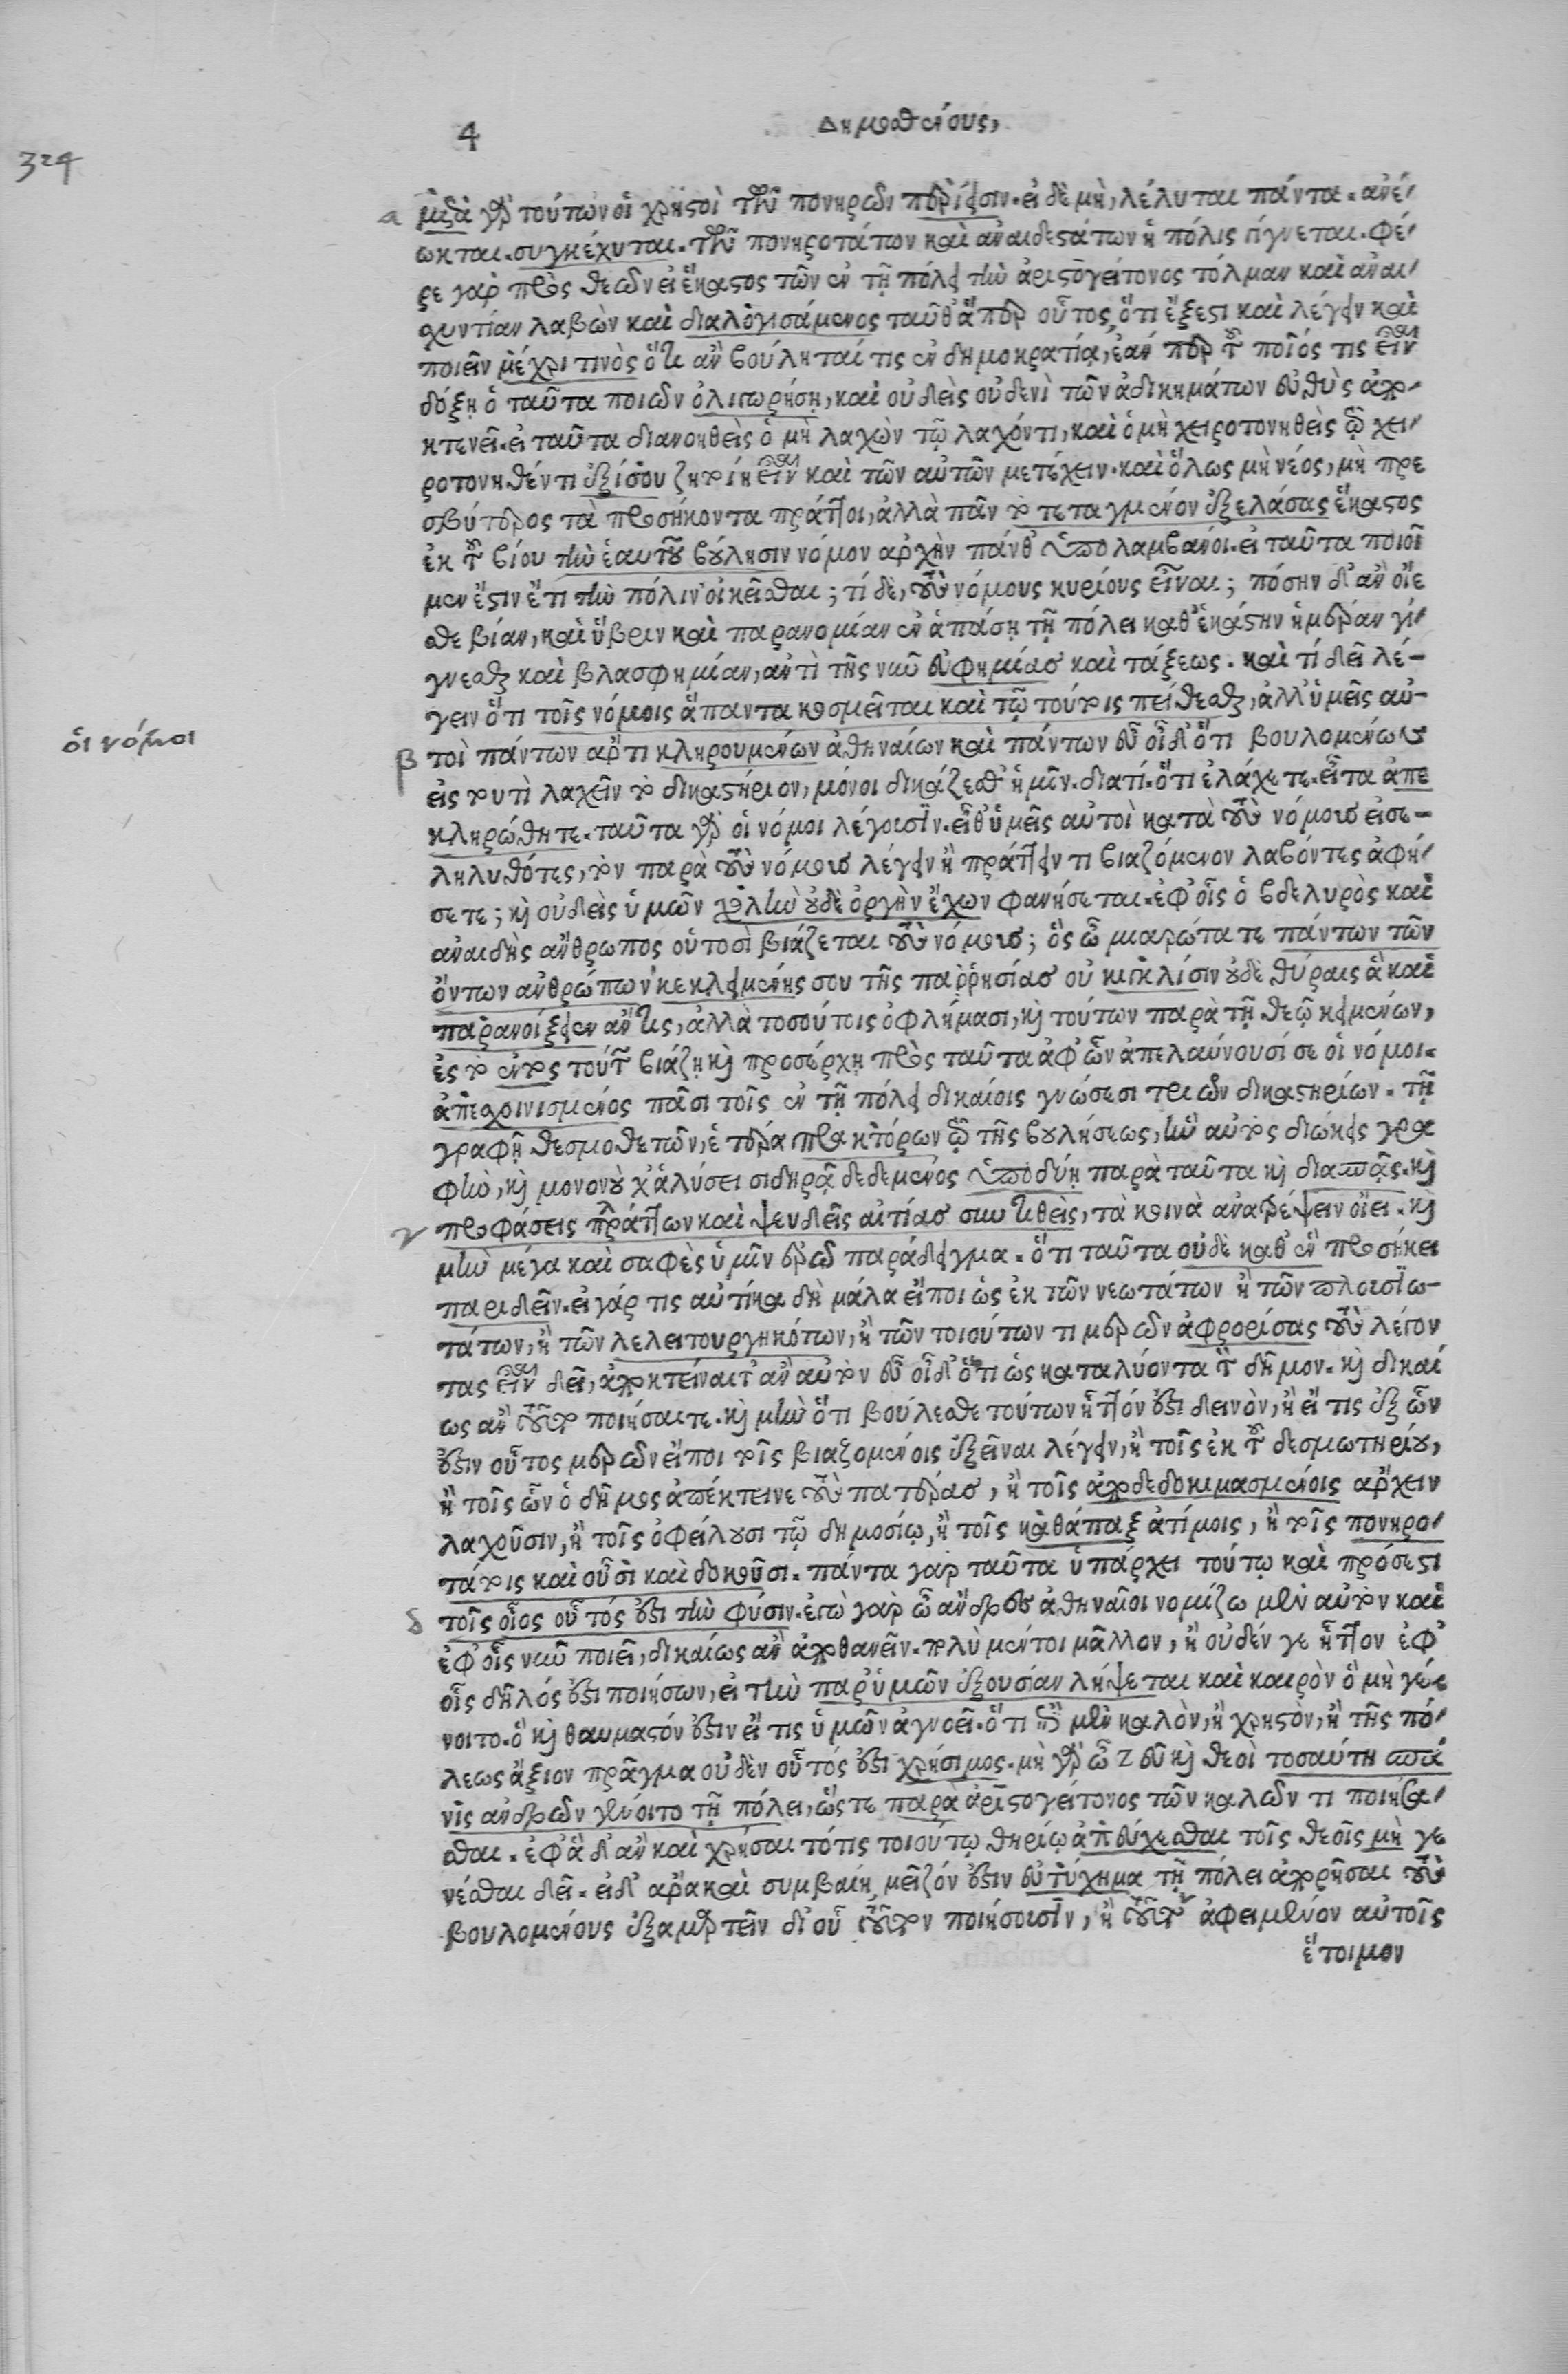 4
Δημοσθένους,
324
α μετὰ γὰρ τούτων οἱ χρηστοὶ τῶν πονηρῶν περίεισιν. εἰ δὲ μὴ, λέλυται πάντα. ἀνέ-
ωκται. συγκέχυται. τῶν πονηροτάτων καὶ ἀναιδεστάτων ἡ πόλις γίγνεται. φέ-
ρε γὰρ πρὸς θεῶν εἰ ἕκαστος τῶν ἐν τῇ πόλει τὴν ἀριστογείτονος τόλμαν καὶ ἀναι-
σχυντίαν λαβὼν καὶ διαλογισάμενος ταῦθ' ἅπερ οὗτος, ὅτι ἔξεστι καὶ λέγειν καὶ
ποιεῖν μέχρι τινὸς ὅτι ἂν βούληταί τις ἐν δημοκρατίᾳ, ἐάν περ τοῦ ποῖός τις εἶναι
δόξῃ ὁ ταῦτα ποιῶν ὀλιγωρήσῃ, καὶ οὐδεὶς οὐδενὶ τῶν ἀδικημάτων εὐθὺς ἀπο-
κτενεῖ. εἰ ταῦτα διανοηθεὶς ὁ μὴ λαχὼν τῷ λαχόντι, καὶ ὁ μὴ χειροτονηθεὶς τῷ χει-
ροτονηθέντι ἐξίσου ζητοίη εἶναι καὶ τῶν αὐτῶν μετέχειν. καὶ ὅλως μὴ νέος, μὴ πρε
σβύτερος τὰ προσήκοντα πράττοι, ἀλλὰ πᾶν τὸ τεταγμένον ἐξελάσας ἕκαστος
ἐκ τοῦ βίου τὴν ἑαυτοῦ βούλησιν νόμον ἀρχὴν πάνθ' ὑπολαμβάνοι. εἰ ταῦτα ποιοῖ
μεν ἔστιν ἔτι τὴν πόλιν οἰκεῖσθαι; τί δὲ, τοὺς νόμους κυρίους εἶναι; πόσην δ' ἂν οἴε
σθε βίαν, καὶ ὕβριν καὶ παρανομίαν ἐν ἁπάσῃ τῇ πόλει καθ' ἑκάστην ἡμέραν γί-
γνεσθαι καὶ βλασφημίαν, ἀντὶ τῆς νῦν εὐφημίας καὶ τάξεως. καὶ τί δεῖ λέ-
γειν ὅτι τοῖς νόμοις ἅπαντα κοσμεῖται καὶ τῷ τούτοις πείθεσθαι, ἀλλ' ὑμεῖς αὐ-
οἱ νόμοι
β τοὶ πάντων ἄρτι κληρουμένων ἀθηναίων καὶ πάντων εὖ οἶδ' ὅτι βουλομένων
εἰς τουτὶ λαχεῖν τὸ δικαστήριον, μόνοι δικάζεθ' ἡμῖν. διατί. ὅτι ἐλάχετε. εἶτα ἀπε
κληρώθητε. ταῦτα γὰρ οἱ νόμοι λέγουσιν. εἶθ' ὑμεῖς αὐτοὶ κατὰ τοὺς νόμους εἰσε-
ληλυθότες, τὸν παρὰ τοὺς νόμους λέγειν ἢ πράττειν τι βιαζόμενον λαβόντες ἀφή-
σετε; καὶ οὐδεὶς ὑμῶν χολὴν οὐδὲ ὀργὴν ἔχων φανήσεται. ἐφ' οἷς ὁ βδελυρὸς καὶ
ἀναιδὴς ἄνθρωπος οὑτοσὶ βιάζεται τοὺς νόμους; ὃς ὦ μιαρώτατε πάντων τῶν
ὄντων ἀνθρώπων κεκλειμένης σου τῆς παῤῥησίας οὐ κιγκλίσιν οὐδὲ θύραις ἃ καὶ
παρανοίξειεν ἄν τις, ἀλλὰ τοσούτοις ὀφλήμασι, καὶ τούτων παρὰ τῇ θεῷ κειμένων,
ἐς τὸ ἐντὸς τούτων βιάζῃ καὶ προσέρχῃ πρὸς ταῦτα ἀφ' ὧν ἀπελαύνουσί σε οἱ νόμοι.
ἀπεσχοινισμένος πᾶσι τοῖς ἐν τῇ πόλει δικαίοις γνώσεσι τριῶν δικαστηρίων. τῇ
γραφῇ θεσμοθετῶν, ἑτέρᾳ πρακτόρων τῷ τῆς βουλήσεως, ἣν αὐτὸς διώκεις γρα
φὴν, καὶ μονονοὺ χ' ἁλύσει σιδηρᾷ δεδεμένος ὑποδύῃ παρὰ ταῦτα καὶ διασπᾷς. καὶ
γ προφάσεις πράττων καὶ ψευδεῖς αἰτίας συντιθεὶς, τὰ κοινὰ ἀνατρέψειν οἴει. καὶ
μὴν μέγα καὶ σαφὲς ὑμῖν ἐρῶ παράδειγμα. ὅτι ταῦτα οὐδὲ καθ' ἓν προσήκει
παριδεῖν. εἰ γάρ τις αὐτίκα δὴ μάλα εἴποι ὡς ἐκ τῶν νεωτάτων ἢ τῶν πλουσιω-
τάτων, ἢ τῶν λελειτουργηκότων, ἢ τῶν τοιούτων τι μερῶν ἀφορίσας τοὺς λέγον
τας εἶναι δεῖ, ἀποκτείναιτ' ἂν αὐτὸν εὖ οἶδ' ὅτι ὡς καταλύοντα τὸν δῆμον. καὶ δικαί
ως ἂν τοῦτο ποιήσαιτε. καὶ μὴν ὅτι βούλεσθε τούτων ἧττόν ἐστι δεινὸν, ἢ εἴ τις ἐξ ὧν
ἐστιν οὗτος μερῶν εἴποι τοῖς βιαζομένοις ἐξεῖναι λέγειν, ἢ τοῖς ἐκ τοῦ δεσμωτηρίου,
ἢ τοῖς ὧν ὁ δῆμος ἀπέκτεινε τοὺς πατέρας, ἢ τοῖς ἀποδεδοκιμασμένοις ἄρχειν
λαχοῦσιν, ἢ τοῖς ὀφείλουσι τῷ δημοσίῳ, ἢ τοῖς καθάπαξ ἀτίμοις, ἢ τοῖς πονηρο-
τάτοις καὶ οὖσι καὶ δοκοῦσι. πάντα γὰρ ταῦτα ὑπάρχει τούτῳ καὶ πρόσεστι
δ τοῖς οἷος οὗτός ἐστι τὴν φύσιν. ἐγὼ γὰρ ὦ ἄνδρες ἀθηναῖοι νομίζω μὲν αὐτὸν καὶ
ἐφ' οἷς νῦν ποιεῖ, δικαίως ἂν ἀποθανεῖν. πολὺ μέντοι μᾶλλον, ἢ οὐδέν γε ἧττον ἐφ'
οἷς δῆλός ἐστι ποιήσων, εἰ τὴν παρ' ὑμῶν ἐξουσίαν λήψεται καὶ καιρὸν ὃ μὴ γέ-
νοιτο. ὃ καὶ θαυμαστόν ἐστιν εἴ τις ὑμῶν ἀγνοεῖ. ὅτι ἐπὶ μὲν καλὸν, ἢ χρηστὸν, ἢ τῆς πό-
λεως ἄξιον πρᾶγμα οὐδὲν οὗτός ἐστι χρήσιμος. μὴ γὰρ ὦ ζεῦ καὶ θεοὶ τοσαύτη σπά
νις ἀνδρῶν γένοιτο τῇ πόλει, ὥστε παρὰ ἀριστογείτονος τῶν καλῶν τι ποιήσα-
σθαι. ἐφ' ἃ δ' ἂν καὶ χρήσαι τό τις τοιούτῳ θηρίῳ ἀπεύχεσθαι τοῖς θεοῖς μὴ γε
νέσθαι δεῖ. εἰ δ' ἄρα καὶ συμβαίη, μεῖζόν ἐστιν εὐτύχημα τῇ πόλει ἀπορῆσαι τοὺς
βουλομένους ἐξαμαρτεῖν δι' οὗ τοῦτον ποιήσουσιν, ἢ τοῦτον ἀφειμένον αὐτοῖς
ἕτοιμον